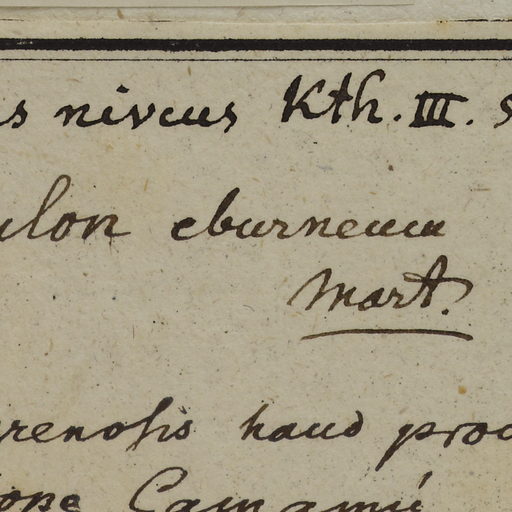 s niveus Kth. III. s
ulon eburneum
Mart.
renosis haud proc
ope Camamú